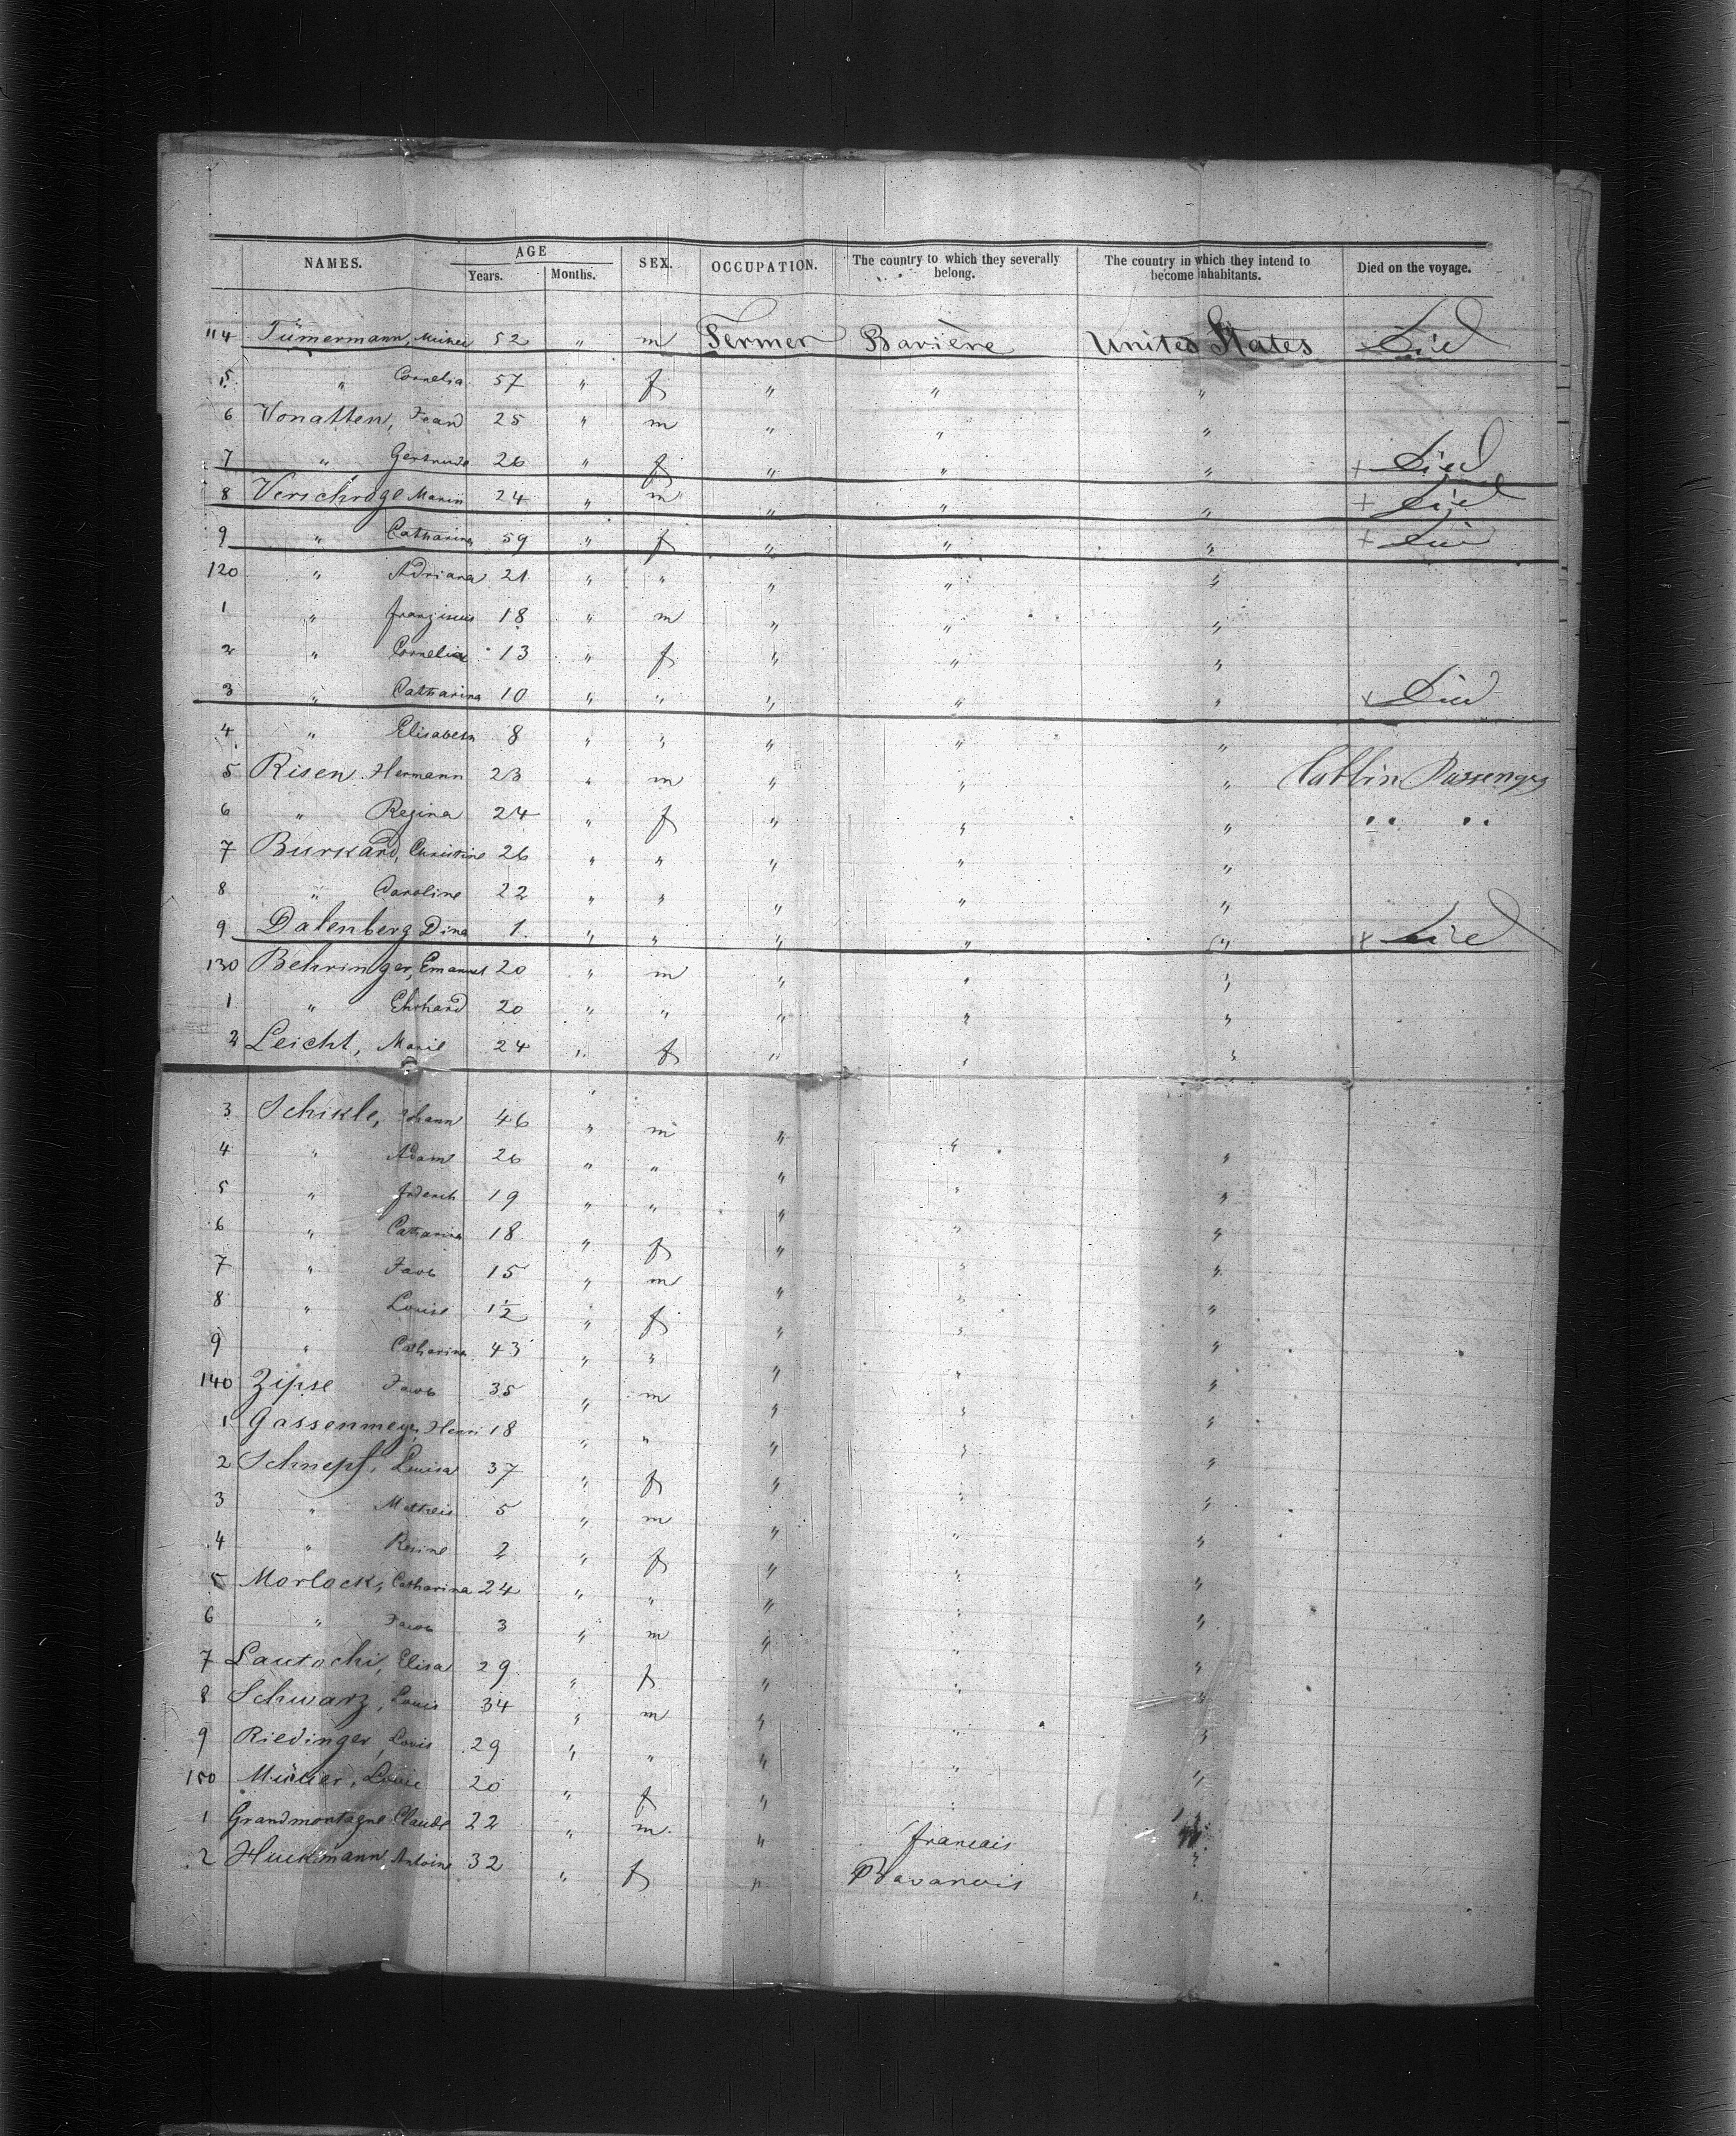 NAMES. AGE Years. Months. SEX. OCCUPATION. The country to which they severally belong. The country in which they intend to become inhabitants. Died on the voyage.
114 Tümermann, 52 " m Fermer Bavière United States Died
5 " Cornelia 57 " f " " "
6 Vonatten, Jean 25 " m " " "
7 " Gertrude 26 " f " " " + Died
8 Verschrage Marin 24 " m " " " + Died
9 " Catharina 59 " f " " " + Died
120 " Adriana 21 " " " " "
1 " franziscus 18 " m " " "
2 " Cornelia 13 " f " " "
3 " Catharina 10 " " " " " + Died
4 " Elisabeth 8 " " " " "
5 Risen Hermann 23 " m " " " Cabbin Passengers
6 " Regina 24 " f " " " " "
7 Burkard, Christine 26 " " " " "
8 " Caroline 22 " " " " "
9 Dalenberg Dina 1 " " " " " + Died
130 Behringer, Emanuel 20 " m " " "
1 " Ehrhard 20 " " " " "
2 Leicht, Marie 24 " f " " "
3 Schikle, Johann 46 " m " "
4 " Adam 26 " " " " "
5 " frderich 19 " " " " "
6 " Catharina 18 " f " " "
7 " Jacob 15 " m " " "
8 " Louise 1½ " f " " "
9 " Catharina 43 " " " " "
140 Zipse Jacob 35 " m " " "
1 Gassenmeyer, Henri 18 " " " " "
2 Schnepf, Louisa 37 " f " " "
3 " Matheis 5 " m " " "
4 " Rosine 2 " f " " "
5 Morlock, Catharina 24 " " " " "
6 " Jacob 3 " m " " "
7 Lautochi, Elisa 29 " f " " "
8 Schwarz, Louis 34 " m " " "
9 Riedinger, Louis 29 " " " " "
150 Müller, Louise 20 " f " " "
1 Grandmontagne Claude 22 " m " francais "
2 Huckmann, Antoine 32 " f " Bavarois "